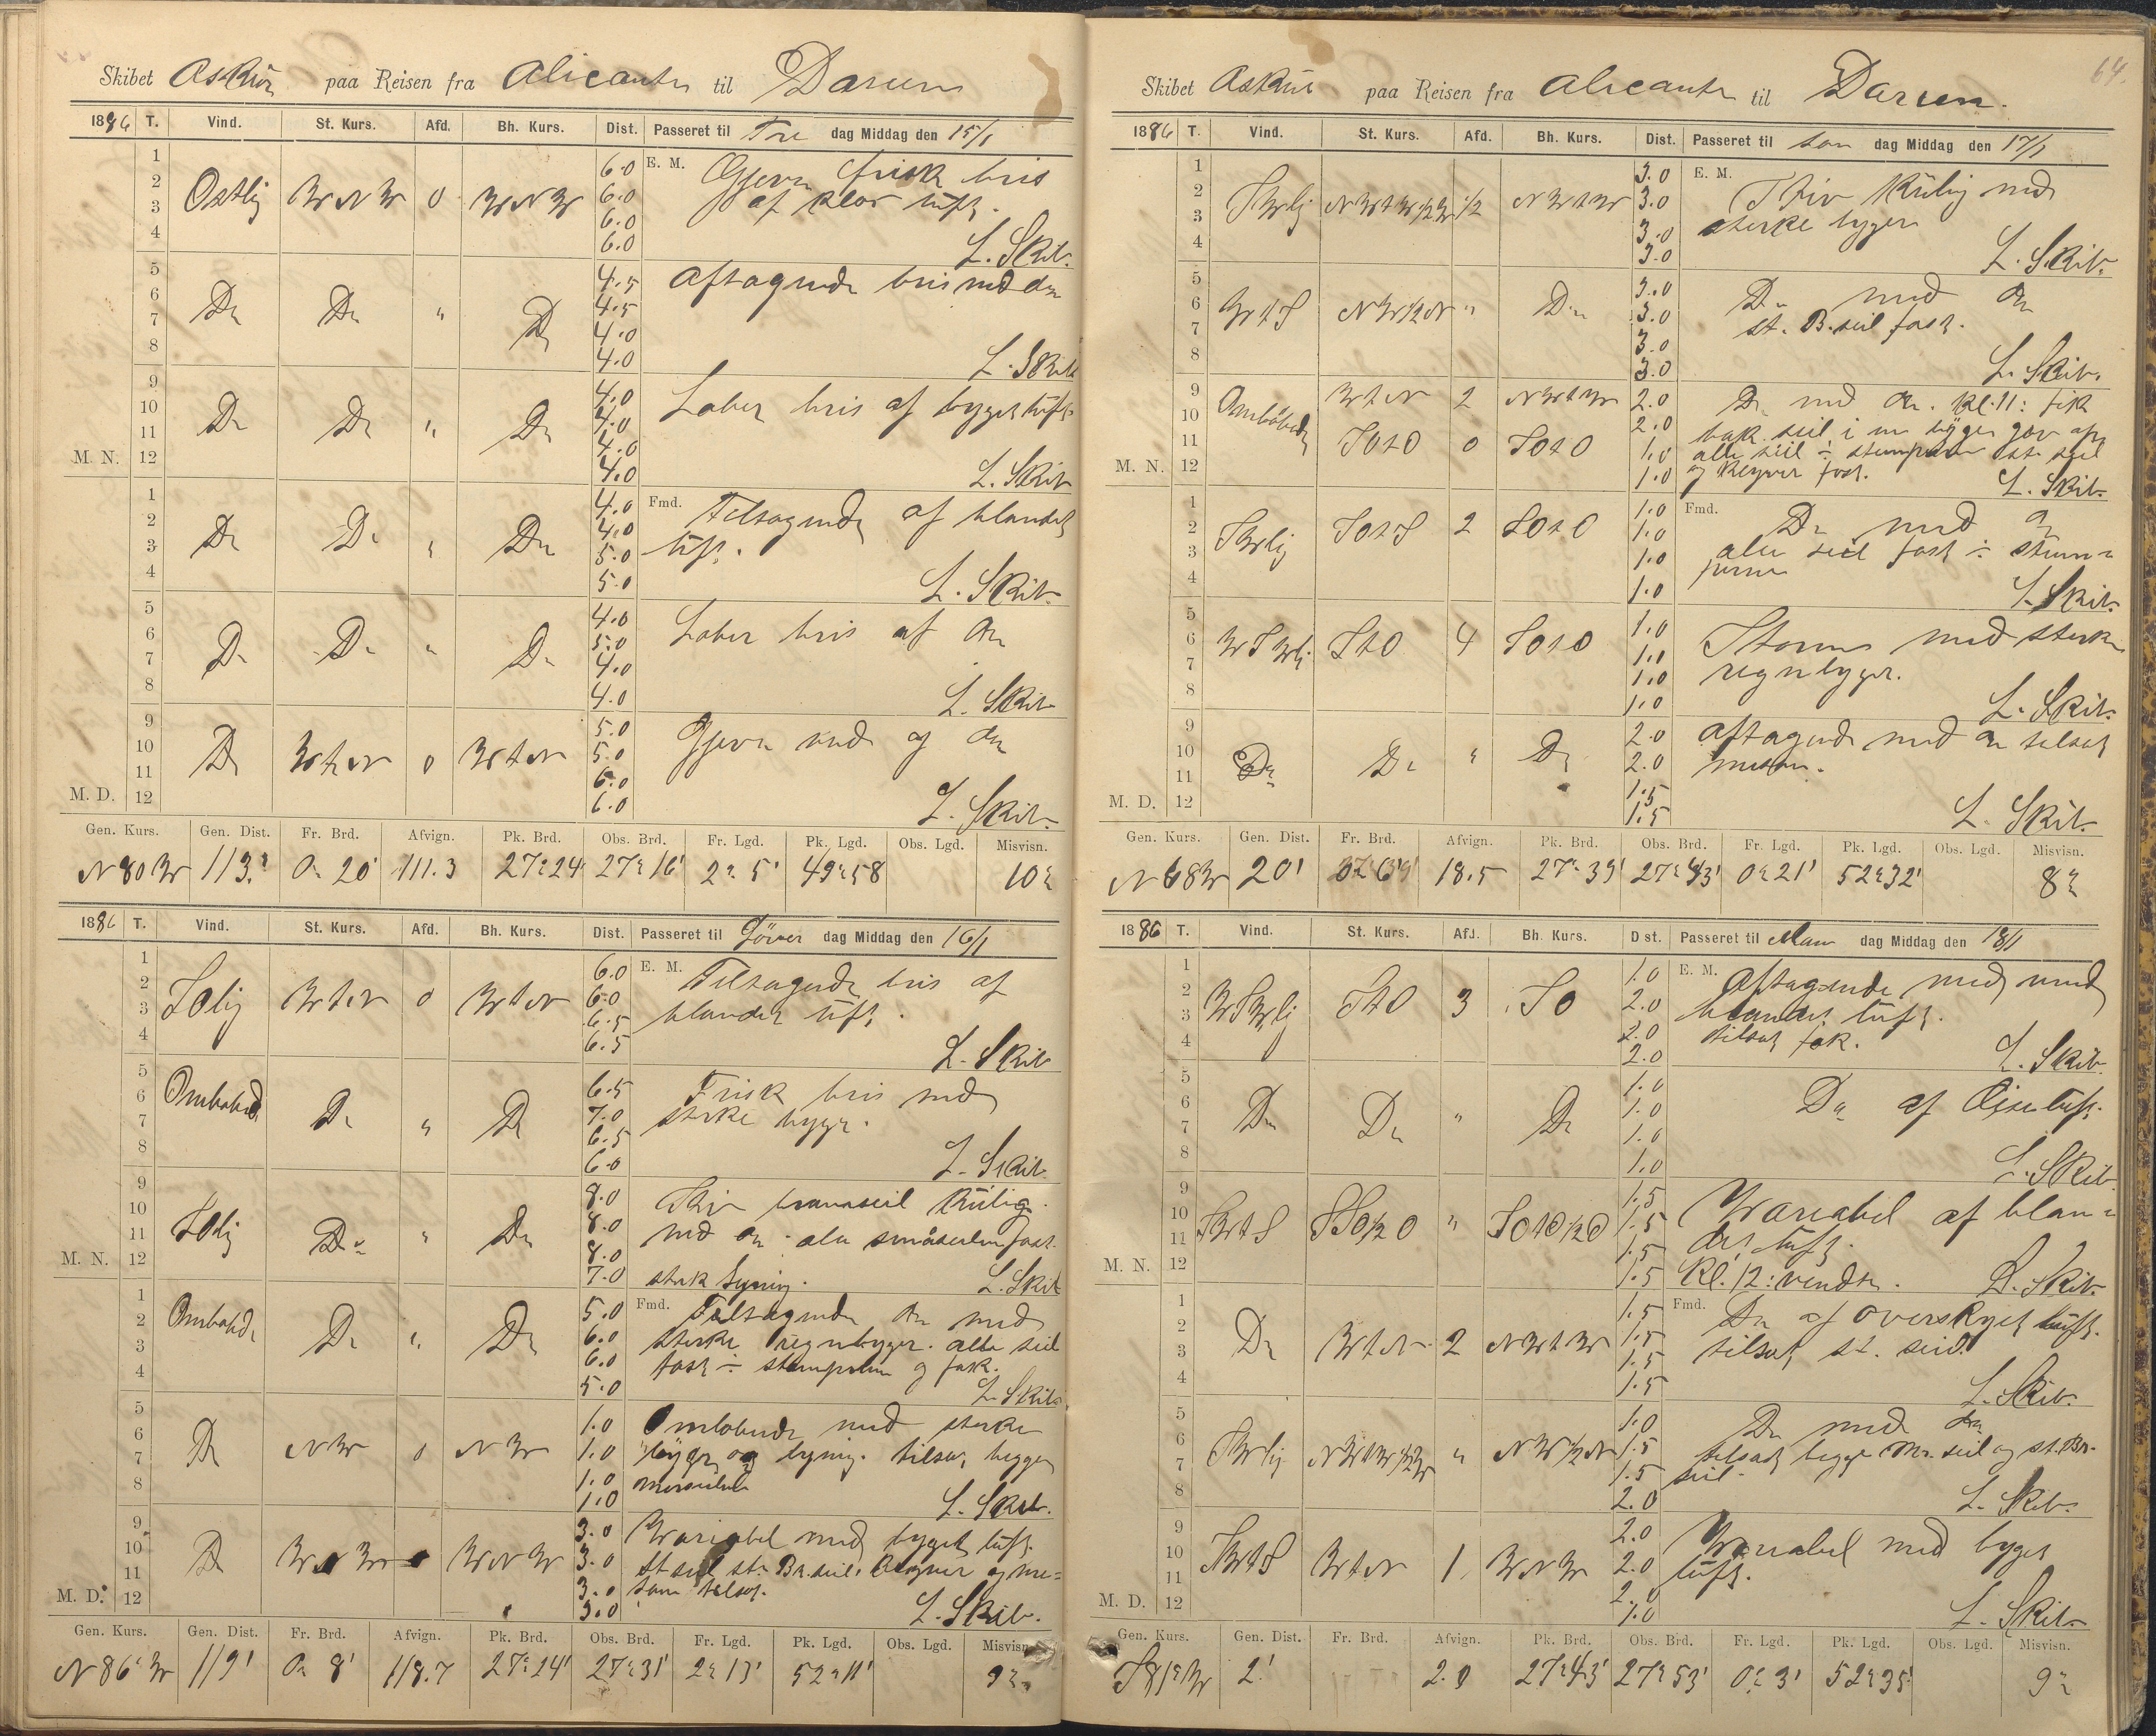 Skibet Askur paa Reisen fra Alicante til Darien
1886 T. Vind. St. Kurs. Afd. Bh. Kurs. Dist. Passeret til Fre dag Middag den 15/1
1 6.0 E. M. Gjevn frisk bris
2 Ostlig WNW 0 WNW 6.0 af klar luft.
3 6.0
4 6.0 L. Skib.
5 4.5 Aftagende bris med do
6 Do Do " Do 4.5
7 4.0
8 4.0 L. Skib
9 4.0 Laber bris af byget luft
10 Do Do " Do 4.0
11 4.0
M. N. 12 4.0 L. Skib
1 4.0 Fmd. Tiltagende af blandet
2 Do Do " Do 4.0 luft.
3 5.0
4 5.0 L. Skib.
5 4.0 Laber bris af do
6 Do Do " Do 5.0
7 4.0
8 4.0 L. Skib
9 5.0 Gjevn vind og do
10 Do WtN 0 WtN 5.0
11 6.0
M. D. 12 6.0 L. Skib.
Gen. Kurs. Gen. Dist. Fr. Brd. Afvign. Pk. Brd. Obs. Brd. Fr. Lgd. Pk. Lgd. Obs. Lgd. Misvisn.
N80W 113' 0° 20' 111.3 27°24' 27°16' 2° 5' 49°58 10°
1886 T. Vind. St. Kurs. Afd. Bh. Kurs. Dist. Passeret til Löver dag Middag den 16/1
1 6.0 E. M. Tiltagende bris af
2 Solig WtN 0 WtN 6.0 blandet luft.
3 6.5
4 6.5 L. Skib
5 6.5 Frisk bris med
6 Omlobnd Do " Do 7.0 sterke byger.
7 6.5
8 6.0 L. Skib.
9 8.0 Stiv bramseil kulig
10 Solig Do " Do 8.0 med do. ale småseilen fast.
11 8.0
M. N. 12 7.0 sterk lyning. L. Skib
1 5.0 Fmd. Tiltagende do med
2 Omlobnde Do " Do 6.0 sterke regnbyger. alle seil
3 6.0 fast ÷ stumperne og fok.
4 5.0 L. Skib.
5 1.0 Omlobende med sterke
6 Do NW 0 NW 1.0 byger og lyning. tilsat begge
7 1.0 merseilene
8 1.0 L. Skib.
9 3.0 Wariabel med byget luft.
10 Do WNW WNW 3.0 st. seil st. Br. seil. Klyver og me=
11 3.0 san tilsat.
M. D. 12 3.0 L. Skib.
Gen. Kurs. Gen. Dist. Fr. Brd. Afvign. Pk. Brd. Obs. Brd. Fr. Lgd. Pk. Lgd. Obs. Lgd. Misvisn.
N86°W 119' 0° 8' 118.7 27°24' 27°31' 2°13' 52°11' 9°
64.
Skibet Askur paa Reisen fra Alicante til Darien.
1886 T. Vind. St. Kurs. Afd. Bh. Kurs. Dist. Passeret til Søn dag Middag den 17/1
1 3.0 E. M. Stiv kulig med
2 SWlig NWtW½W ½ NWtW 3.0 sterke byger
3 3.0
4 3.0 L. Skib.
5 3.0 Do med do
6 WtS NW½N " Do 3.0 st. B. seil fast.
7 3.0
8 3.0 L. Skib.
9 WtN 2 NWtW 2.0 Do med do. Kl. 11: fik
10 Omlobnde 2.0 bak seil, i en byge
11 SOtO 0 SOtO 1.0 alle seil ÷ stumperne st. seil
M. N. 12 1.0 og Klyver fast. L. Skib.
1 1.0 Fmd. Do med do
2 SWlig SOtS 2 SOtO 1.0 alle seil fast ÷ stum=
3 1.0 perne
4 1.0 L. Skib.
5 1.0 Storm med sterke
6 WSWlig StO 4 SOtO 1.0 regnbyger.
7 1.0
8 1.0 L. Skib.
9 2.0 Aftagende med do tilsat
10 Do Do " Do 2.0 mesan.
11 1.5
M. D. 12 1.5 L. Skib.
Gen. Kurs. Gen. Dist. Fr. Brd. Afvign. Pk. Brd. Obs. Brd. Fr. Lgd. Pk. Lgd. Obs. Lgd. Misvisn.
N68W 20' 18.5 27°39' 27°43' 0°21' 52°32' 8°
1886 T. Vind. St. Kurs. Afd. Bh. Kurs. Dist. Passeret til Man dag Middag den 18/1
1 1.0 E. M. Aftagende med
2 WSWlig StO 3 SO 2.0 blandet luft.
3 2.0 tilsat fok.
4 2.0 L. Skib.
5 1.0 Do af Oiseluft.
6 Do Do " Do 1.0
7 1.0
8 1.0 L. Skib.
9 1.5 Wariabel af blan=
10 SWtS SSO½O " SOtO½O 1.5 det luft.
11 1.5
M. N. 12 1.5 Kl. 12: vendte. L. Skib.
1 1.5 Fmd. Do af overskyet luft.
2 Do WtN 2 NWtW 1.5 tilsat st. seil.
3 1.5
4 1.5 L. Skib.
5 1.0 Do med do
6 SWlig NWtW½W " NW½N 1.5 tilsat begge Mr. seil og st. Br.
7 1.5 seil.
8 2.0 L. Skib.
9 2.0 Wariabel med byget
10 SWtS WtN 1 WNW 2.0 luft.
11 2.0
M. D. 12 1.0 L. Skib.
Gen. Kurs. Gen. Dist. Fr. Brd. Afvign. Pk. Brd. Obs. Brd. Fr. Lgd. Pk. Lgd. Obs. Lgd. Misvisn.
S81°W 2' 2.0 27°43' 27°53' 0° 3' 52°35' 9°